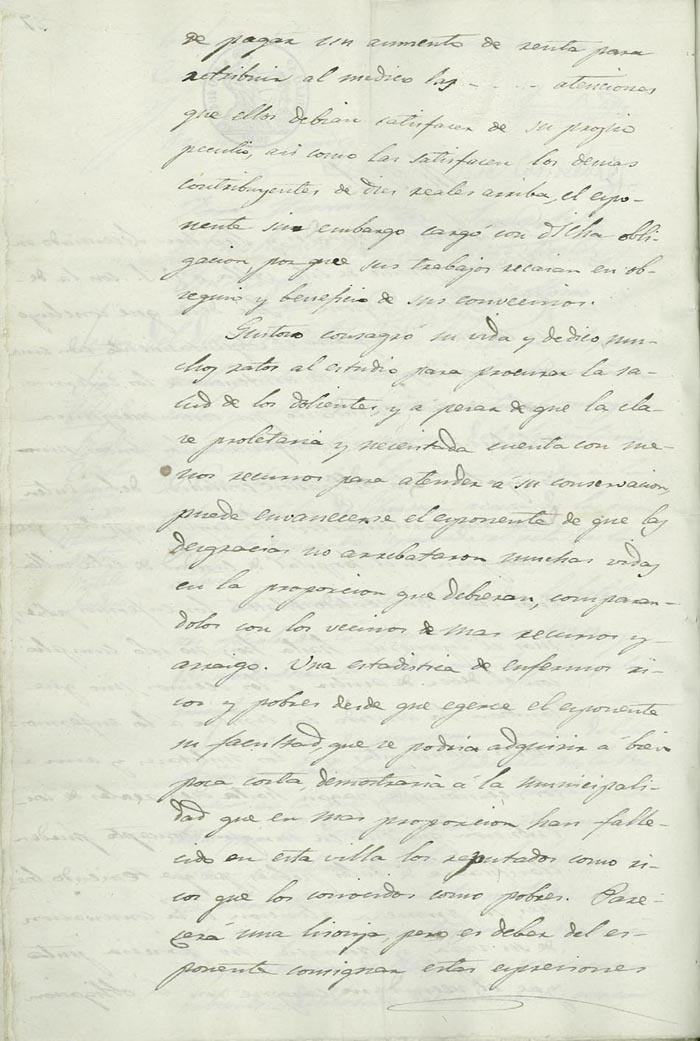 de pagar un aumento de renta para
retribuir al medico las - . . - . atenciones
que ellos debian satisfacer de su propio
peculio, asi como las satisfacen los demas
contribuyentes de dies reales arriba, el espo-
nente sin embargo cargó con dicha obli-
gacion, por que sus trabajos recaian en ob-
sequio y beneficio de sus convecinos.
Gustoso consagró su vida y dedico mu-
chos ratos al estudio para procurar la sa-
lud de los dolientes, y a pesar de que la cla-
se proletaria y necesitada cuenta con me-
nos recursos para atender a su conservacion,
puede envanecerse el esponente de que las
desgracias no arrebataron muchas vidas
en la proporcion que debieran, comparan-
dolos con los vecinos de mas recursos y
arraigo. Una estadistica de enfermos ri-
cos y pobres desde que egerce el esponente
su facultad, que se podria adquirir á bien
poca costa, demostraria á la municipali-
dad que en mas proporcion han falle-
cido en esta villa los reputados como ri-
cos que los conocidos como pobres. Pare-
cerá una lisonja, pero es deber del es-
ponente consignar estas espresiones